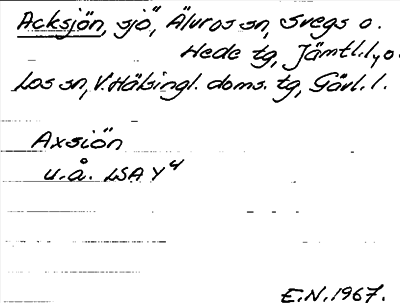 Acksjön, sjö, Älvros sn, Svegs o.
Hede tg, Jämtl. l., o.
Los sn, V. Hälsingl. doms. tg, Gävl. l.
Axsiön
u.å. LSA Y4
E.N. 1967.